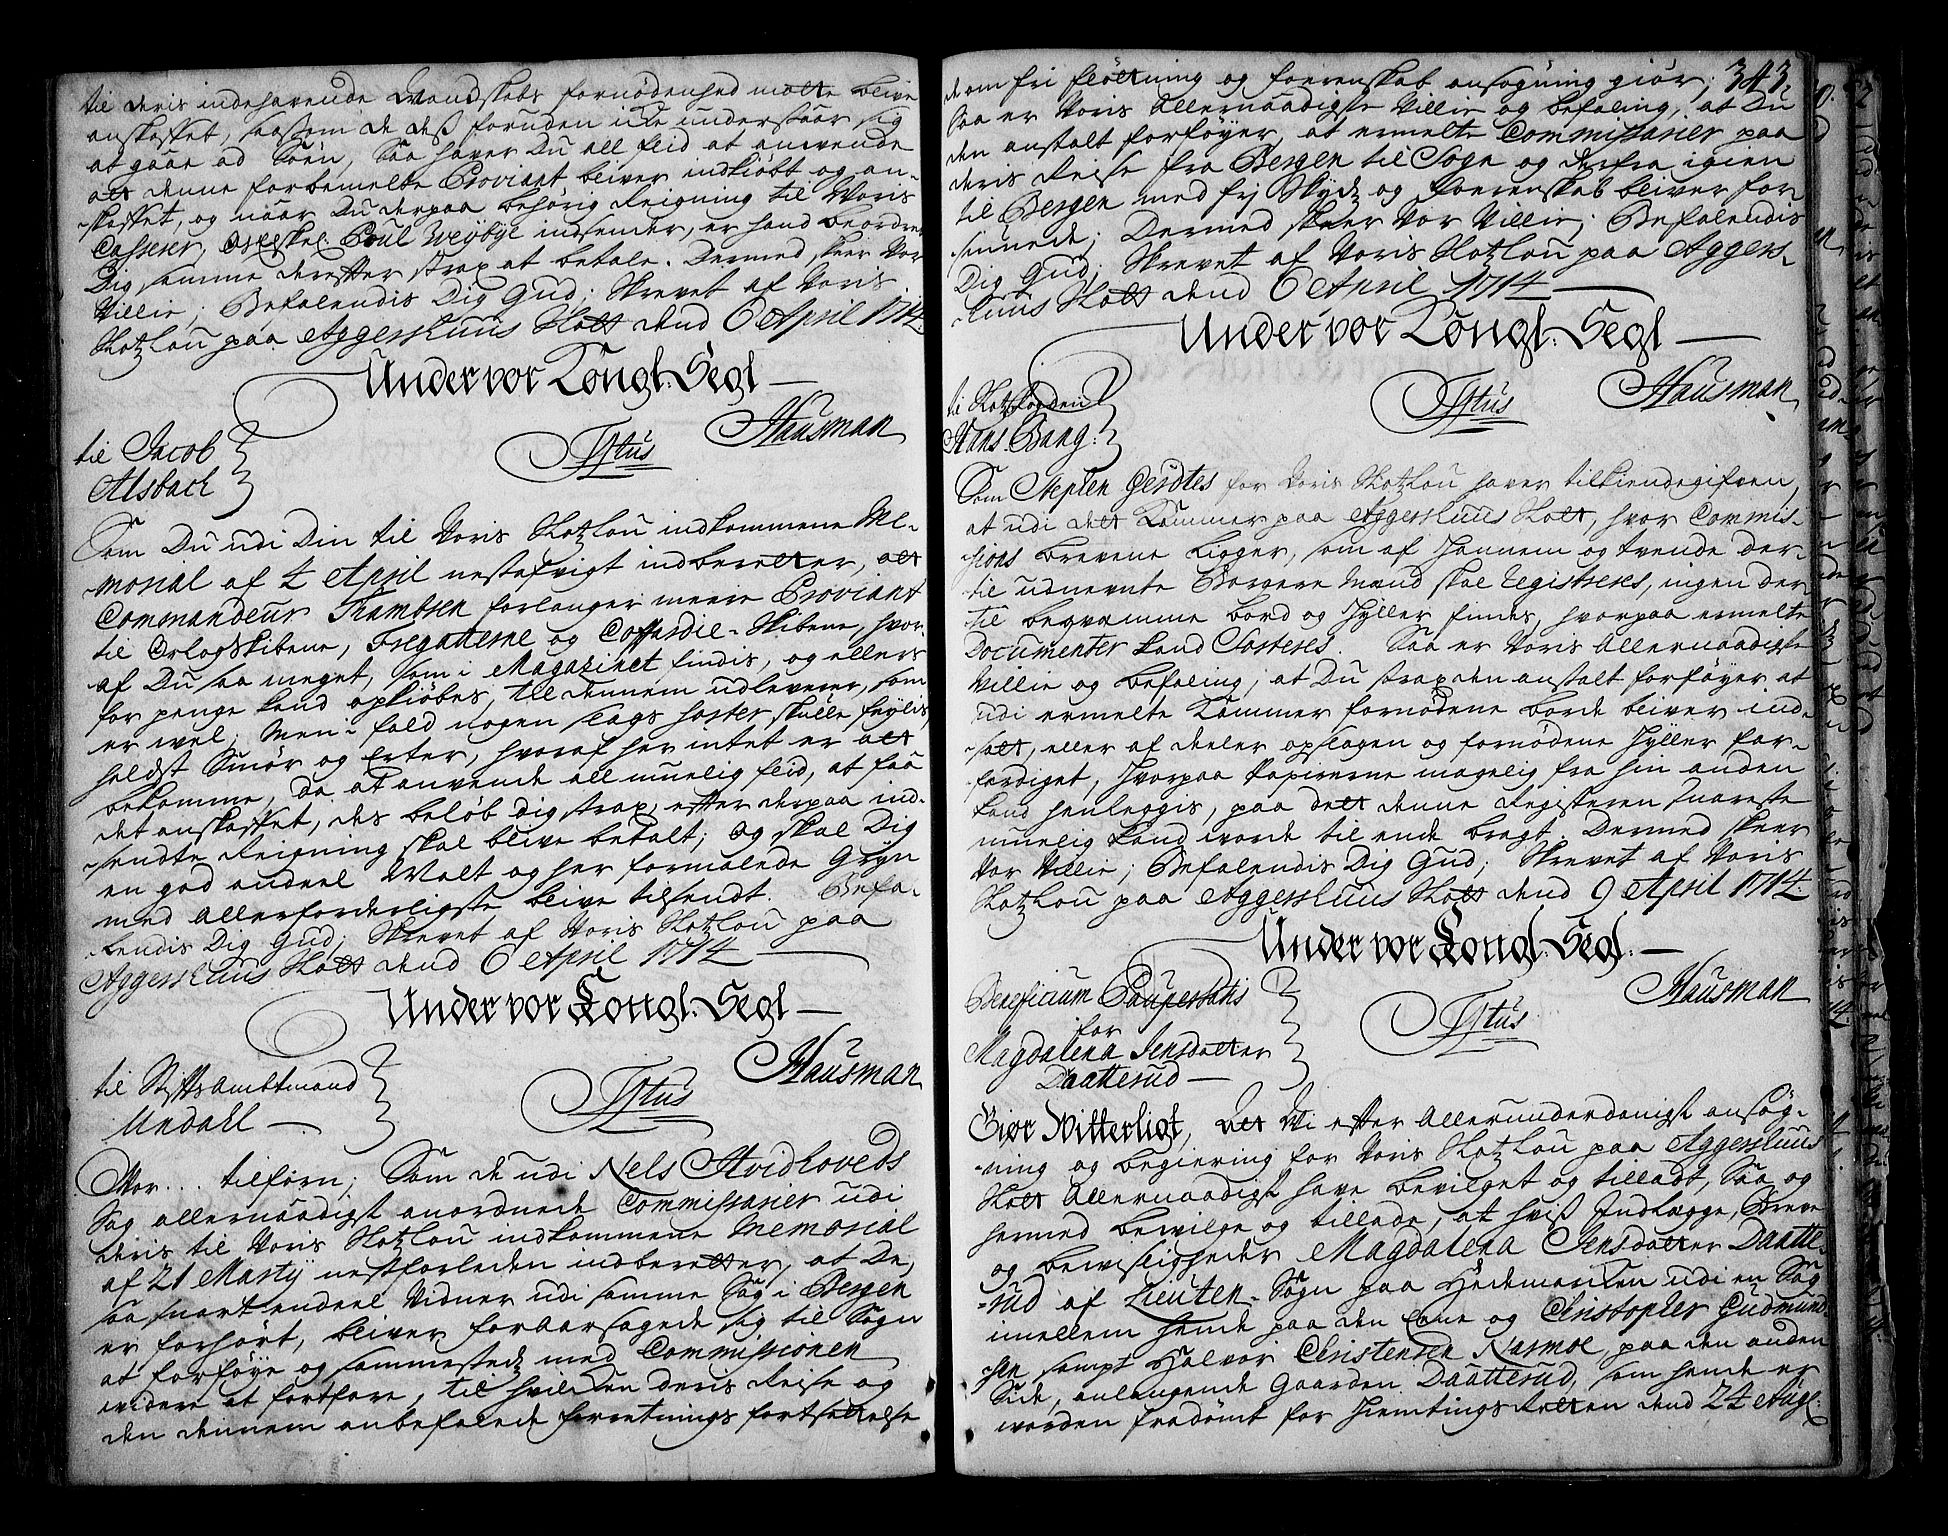 til deris indehavende Mandskabs fornødenhed motte blive
anskaffet, saasom de dess foruden icke understaar sig
at gaae ad Söen, Saa haver Du all fliid at anvende
att denne forbemelte Proviant bliver indkiöbt og an-
skaffet, og naar Du derpaa behörig Reigning til Voris
Casserer, Poul Weybye indsender, er hand beordret
Dig samme derefter strax at betale. Dermed skeer Vor
Villie; Befalendis Dig Gud; Skrevet af Voris
Slotzlou paa Aggershuus Slott dend 6 April 1714.
Under vor Kongl. Segl
Hausman
Tstus
til Jacob
Alsbach
Som Du udi Din til Voris Slotzlou indkommene Me-
morial af 2 April nestafvigt indberetter, att
Commandeur Trambsen forlanger meere Proviant
til Orlogskibene, Fregatterne og Coffardie-Skibene, hvor-
af Du saa meget, som i Magazinet findis, og ellers
for penge kand opkiöbes, til dennem udleverer, som
er wel; Men i fald nogen slags skulle feylis,
heldst Smör og Erter, hvoraf her intet er att
bekomme, da at anvende all muelig fliid, at faae
det anskaffet, des belöb dig strax efter derpaa ind-
sendte Reigning skal blive betalt; og skal Dig
en god andeel Malt og her formalede Gryn
med allerforderligste blive tilsendt. Befa-
lendis Dig Gud; Skrevet af Voris Slotzlou paa
Aggershuus Slott dend 6 April 1714
Under vor Kongl. Segl
Hausman
Tstus
til Stiftsambtmand
Undahl
Vor... tilforn; Som de udi Nels Hvidhoveds
Sag allernaadigst anordnede Commissarier udi
deris til Voris Slotzlou indkommene Memorial
af 21 Martij nestforleden indberetter, at De,
saa snart endeel Vidner udi samme Sag i Bergen
er forhört, bliver foraarsagede sig til Sogn
at forföye og sammestedz med Commissionen
videre at fortfare, til hvilcken deris Reise og
den dennem anbefalede forretnings fortsettelse
343.
de om fri flötning og förenskab ansögning giör;
Saa er Voris Allernaadigste Villie og befaling, at Du
den anstalt forföyer, at ermelte Commissarier paa
deris Reise fra Bergen til Sogn og derfra igien
til Bergen med frj Skydz og förenskab bliver for-
siunede; Dermed skeer Vor Villie; Befalendis
Dig Gud; Skrevet af Voris Slotzlou paa Aggers-
huus Slott dend 6 April 1714
Under vor Kongl. Segl
Hausman
Tstus
til Slotzfogden
Hans Bang.
Som Stephen Gerdtes for Voris Slotzlou haver tilkiendegifven,
at udi dett Kammer paa Aggershuus Slott, hvor Commis-
sions brevene ligger, som af hannem og tvende der-
til udnevnte Borgere Mænd skal Registreres, ingen der-
til beqvemme bord og hyller findes, hvorpaa ermelte
Documenter kand Sorteres. Saa er Voris Allernaadigste
Villie og befaling, at Du strax den anstalt forföyer at
udi ermelte Kammer fornödene borde bliver ind-
satt, eller af deeler opslagen og fornödene hyller for-
fordiget, hvorpaa Papirerne magelig fra hin anden
kand henleggis, paa dett denne Registeren snareste
muelig kand vorde til ende bragt. Dermed skeer
Vor Villie; Befalendis Dig Gud; Skrevet af Voris
Slotzlou paa Aggershuus Slott dend 9 April 1714.
Under vor Kongl. Segl.
Hausman
Tstus
Beneficium Paupertatis
for
Magdalena Jensdatter
Daatterud
Giör Witterligt, Att Wi efter allerunderdanigst ansög-
ning og begiering for Voris Slotzlou paa Aggershuus
Slott Allernaadigst have bevilget og tilladt, Saa og
hermed bevilge og tillade, at hviss Indlægge, Breve
og bevisligheder Magdalena Jensdatter Daatte-
rud af Lieuten- Sogn paa Hedemarcken udi en Sag
imellem hende paa den eene og Christopher Gudmund-
sen sampt Halvor Christensen Narmoe, paa den anden
Side, anlangende Gaarden Daatterud, som hende er
worden fradömt for Hiemtings Retten dend 24 Aug: